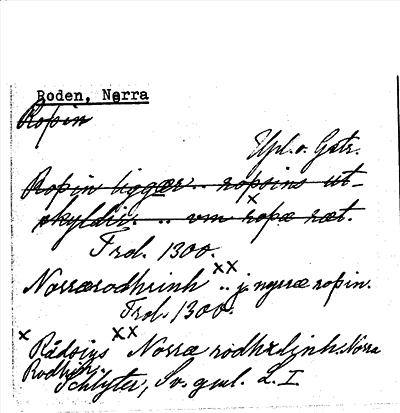 Roden, Norra
Ropin
Upl. o. Gstr.
Ropin liggær .. ropsins ut-
skyldir. .. um xropæ ræt.
Frd. 1300.
Norrærodhrinh xx .. j nyrræ ropin.
Frd. 1300.
x Rådsiys xx Norræ rodhxlinh. Norra
Rodhin.
Schlyter, Sv. gml. L. I